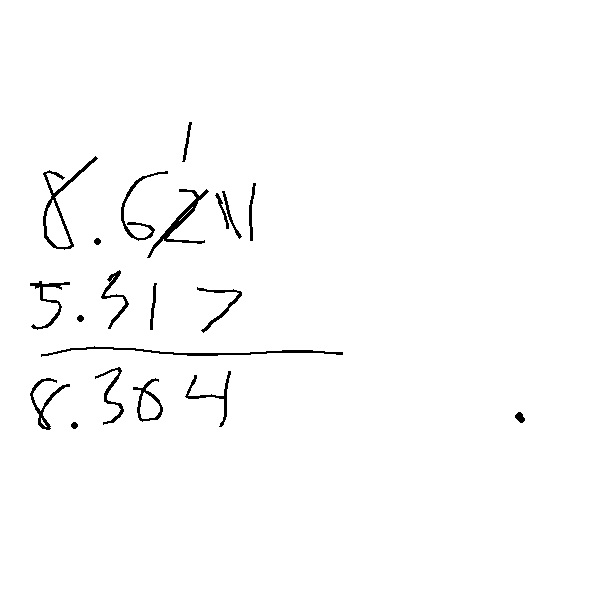 1
8.6211
5.317
8.304